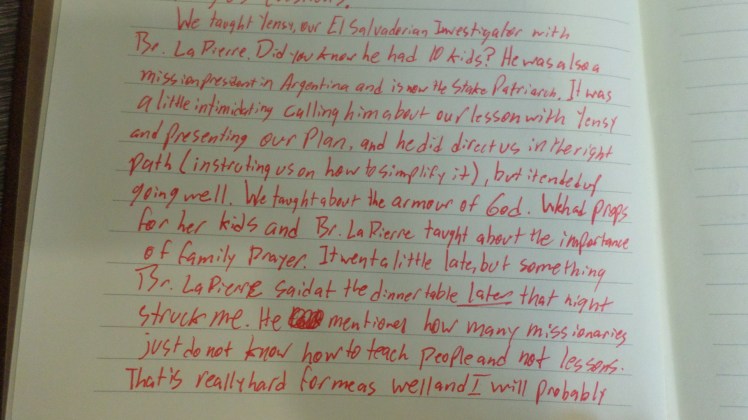 We taught Yensy, our El Salvadorian Investigator with
Br. La Pierre. Did you know he had 10 kids? He was also a
mission president in Argentina and is now the Stake Patriarch. It was
a little intimidating calling him about our lesson with Yensy
and presenting our Plan, and he did direct us in the right
path (instructing us on how to simplify it), but it ended up
going well. We taught about the armour of God. We had props
for her kids and Br. La Pierre taught about the importance
of family prayer. It went a little late, but something
Br. La Pierre said at the dinner table later that night
struck me. He mentioned how many missionaries
just do not know how to teach people and not lessons.
That is really hard for me as well and I will probably